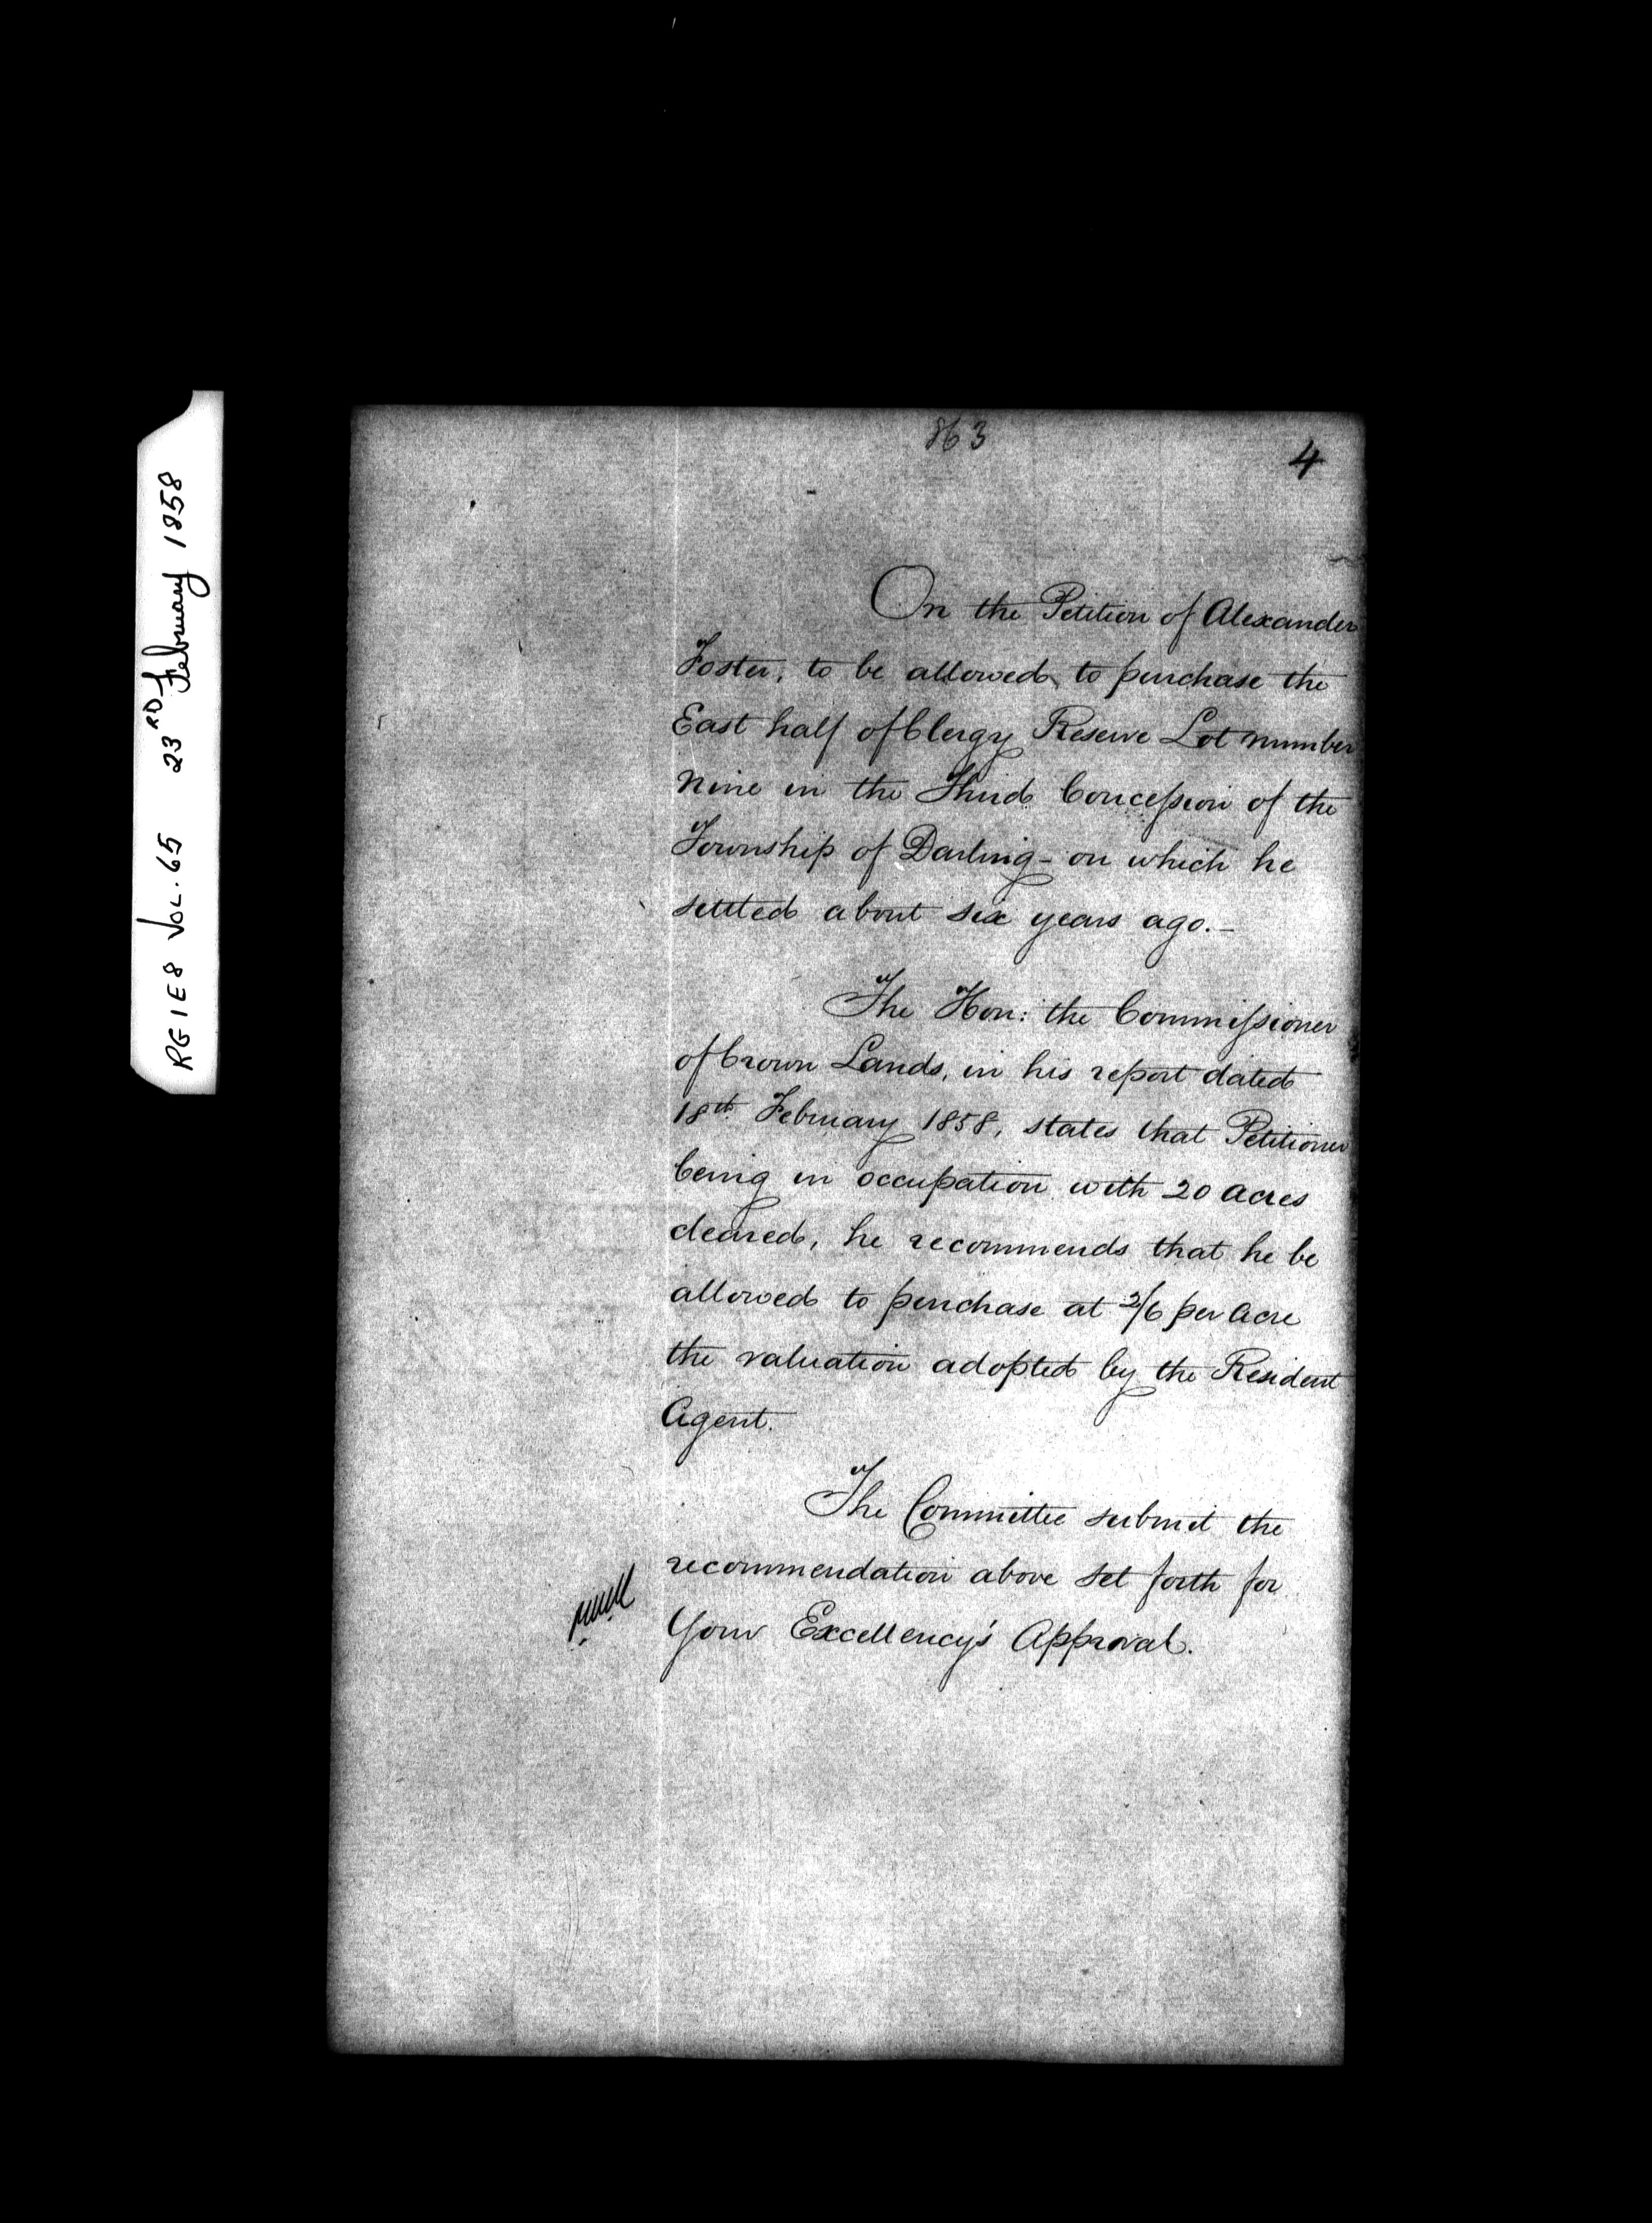 RG1E8 VOL. 65 23RD February 1858
863
4
On the Petition of Alexander
Foster, to be allowed to purchase the
East half of Clergy Reserve Lot number
Nine in the Third Concession of the
Township of Darling - on which he
settled about six years ago. -
The Hon: the Commissioner
of Crown Lands, in his report dated
18th February 1858, states that Petitioner
being in occupation with 20 acres
cleared, he recommends that he be
allowed to purchase at 2/6 per acre
the valuation adopted by the Resident
Agent.
The Committee submit the
recommendation above set forth for
Your Excellency's Approval.